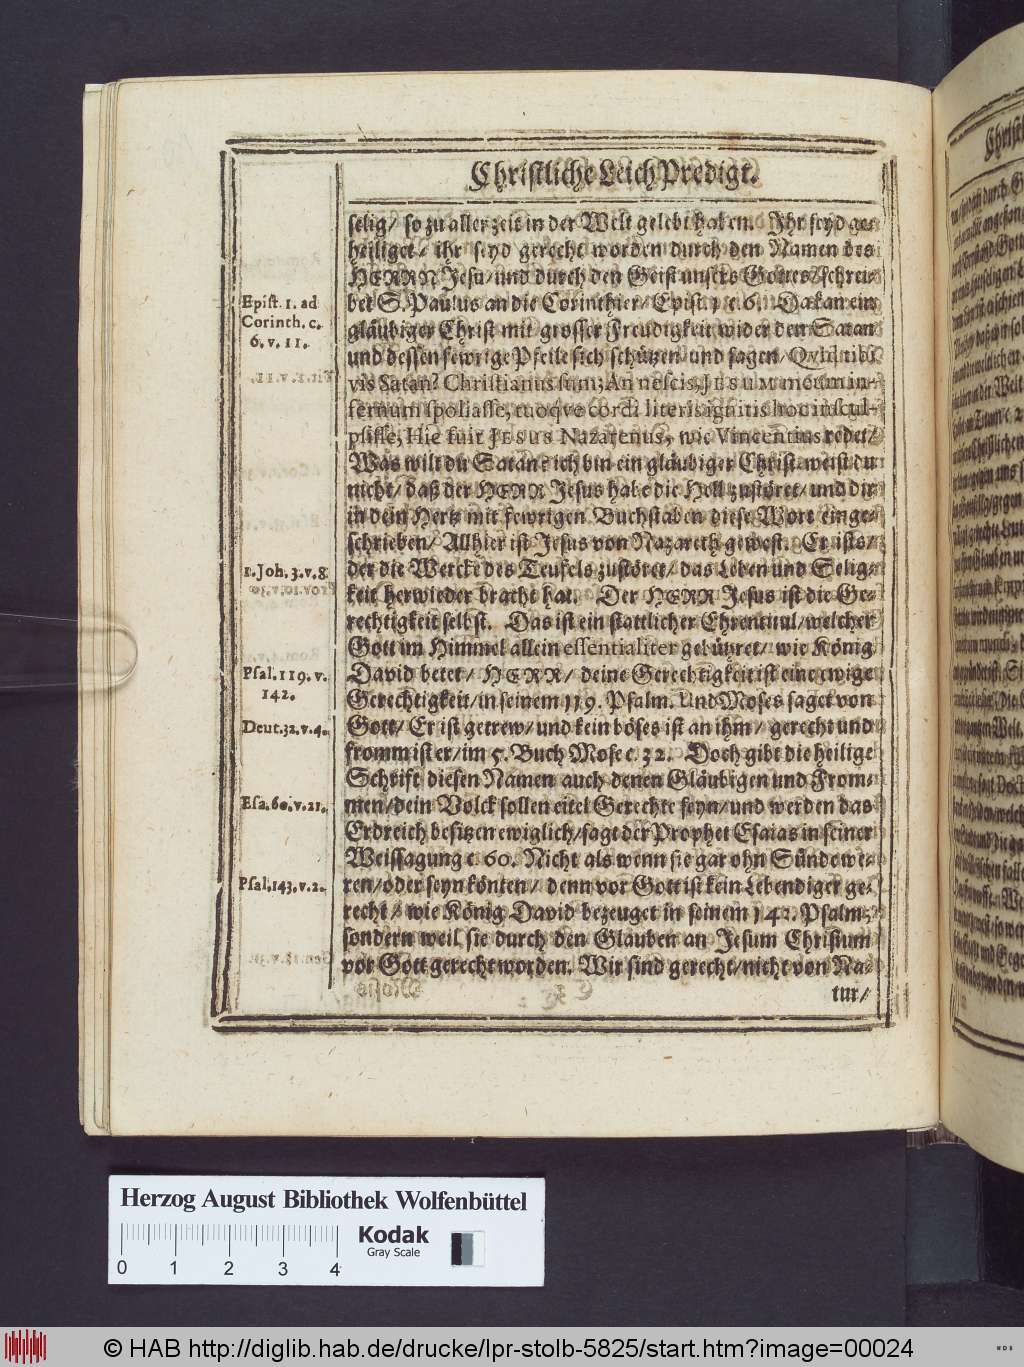 Christliche Leich Predigt.
selig/ so zu aller zeit in der Welt gelebt haben. Ihr seyd ge-
heiliget/ ihr seyd gerecht worden durch den Namen des
HERRN Jesu/ und durch den Geist unsers Gottes/ schrei-
bet S. Paulus an die Corinthier/ Epist. 1 c. 6. Da kan ein
gläubiger Christ mit grosser Freudigkeit wider den Satan
und dessen fewrige Pfeile sich schützen und sagen/ Quid mihi
vis Satan? Christianus sum; An nescis, JESUM meum in-
fernum spoliasse, tuoqve cordi literis ignitis hoc inscul-
psisse, Hic fuit JESUS Nazarenus, wie Vincentius redet/
Was wilt du Satan? ich bin ein gläubiger Christ/ weist du
nicht/ daß der HERR Jesus habe die Hell zustöret/ und dir
in dein Hertz mit fewrigen Buchstaben diese Wort einge-
schrieben/ Allhier ist Jesus von Nazareth gewest. Er ists/
der die Wercke des Teufels zustöret/ das Leben und Selig-
keit herwieder bracht hat. Der HERR Jesus ist die Ge-
rechtigkeit selbst. Das ist ein stattlicher Ehrentitul/ welcher
Gott im Himmel allein essentialiter gebühret/ wie König
David betet/ HERR/ deine Gerechtigkeit ist eine ewige
Gerechtigkeit/ in seinem 119. Psalm. Und Moses saget von
Gott/ Er ist getrew/ und kein böses ist an ihm/ gerecht und
fromm ist er/ im 5. Buch Mose c. 32. Doch gibt die heilige
Schrift diesen Namen auch denen Gläubigen und From-
men/ dein Volck sollen eitel Gerechte seyn/ und werden das
Erdreich besitzen ewiglich/ sagt der Prophet Esaias in seiner
Weissagung c. 60. Nicht als wenn sie gar ohn Sünde we-
ren/ oder seyn könten/ denn vor Gott ist kein Lebendiger ge-
recht/ wie König David bezeuget in seinem 142. Psalm,
sondern weil sie durch den Glauben an Jesum Christum
vor Gott gerecht worden. Wir sind gerecht/ nicht von Na-
tur/
Epist. 1. ad
Corinth. c.
6. v. 11.
1. Joh. 3. v. 8
Psal. 119. v.
142.
Deut. 32. v. 4.
Esa. 60. v. 21.
Psal. 143. v. 2.
Herzog August Bibliothek Wolfenbüttel
Kodak
Gray Scale
0 1 2 3 4
© HAB http://diglib.hab.de/drucke/lpr-stolb-5825/start.htm?image=00024